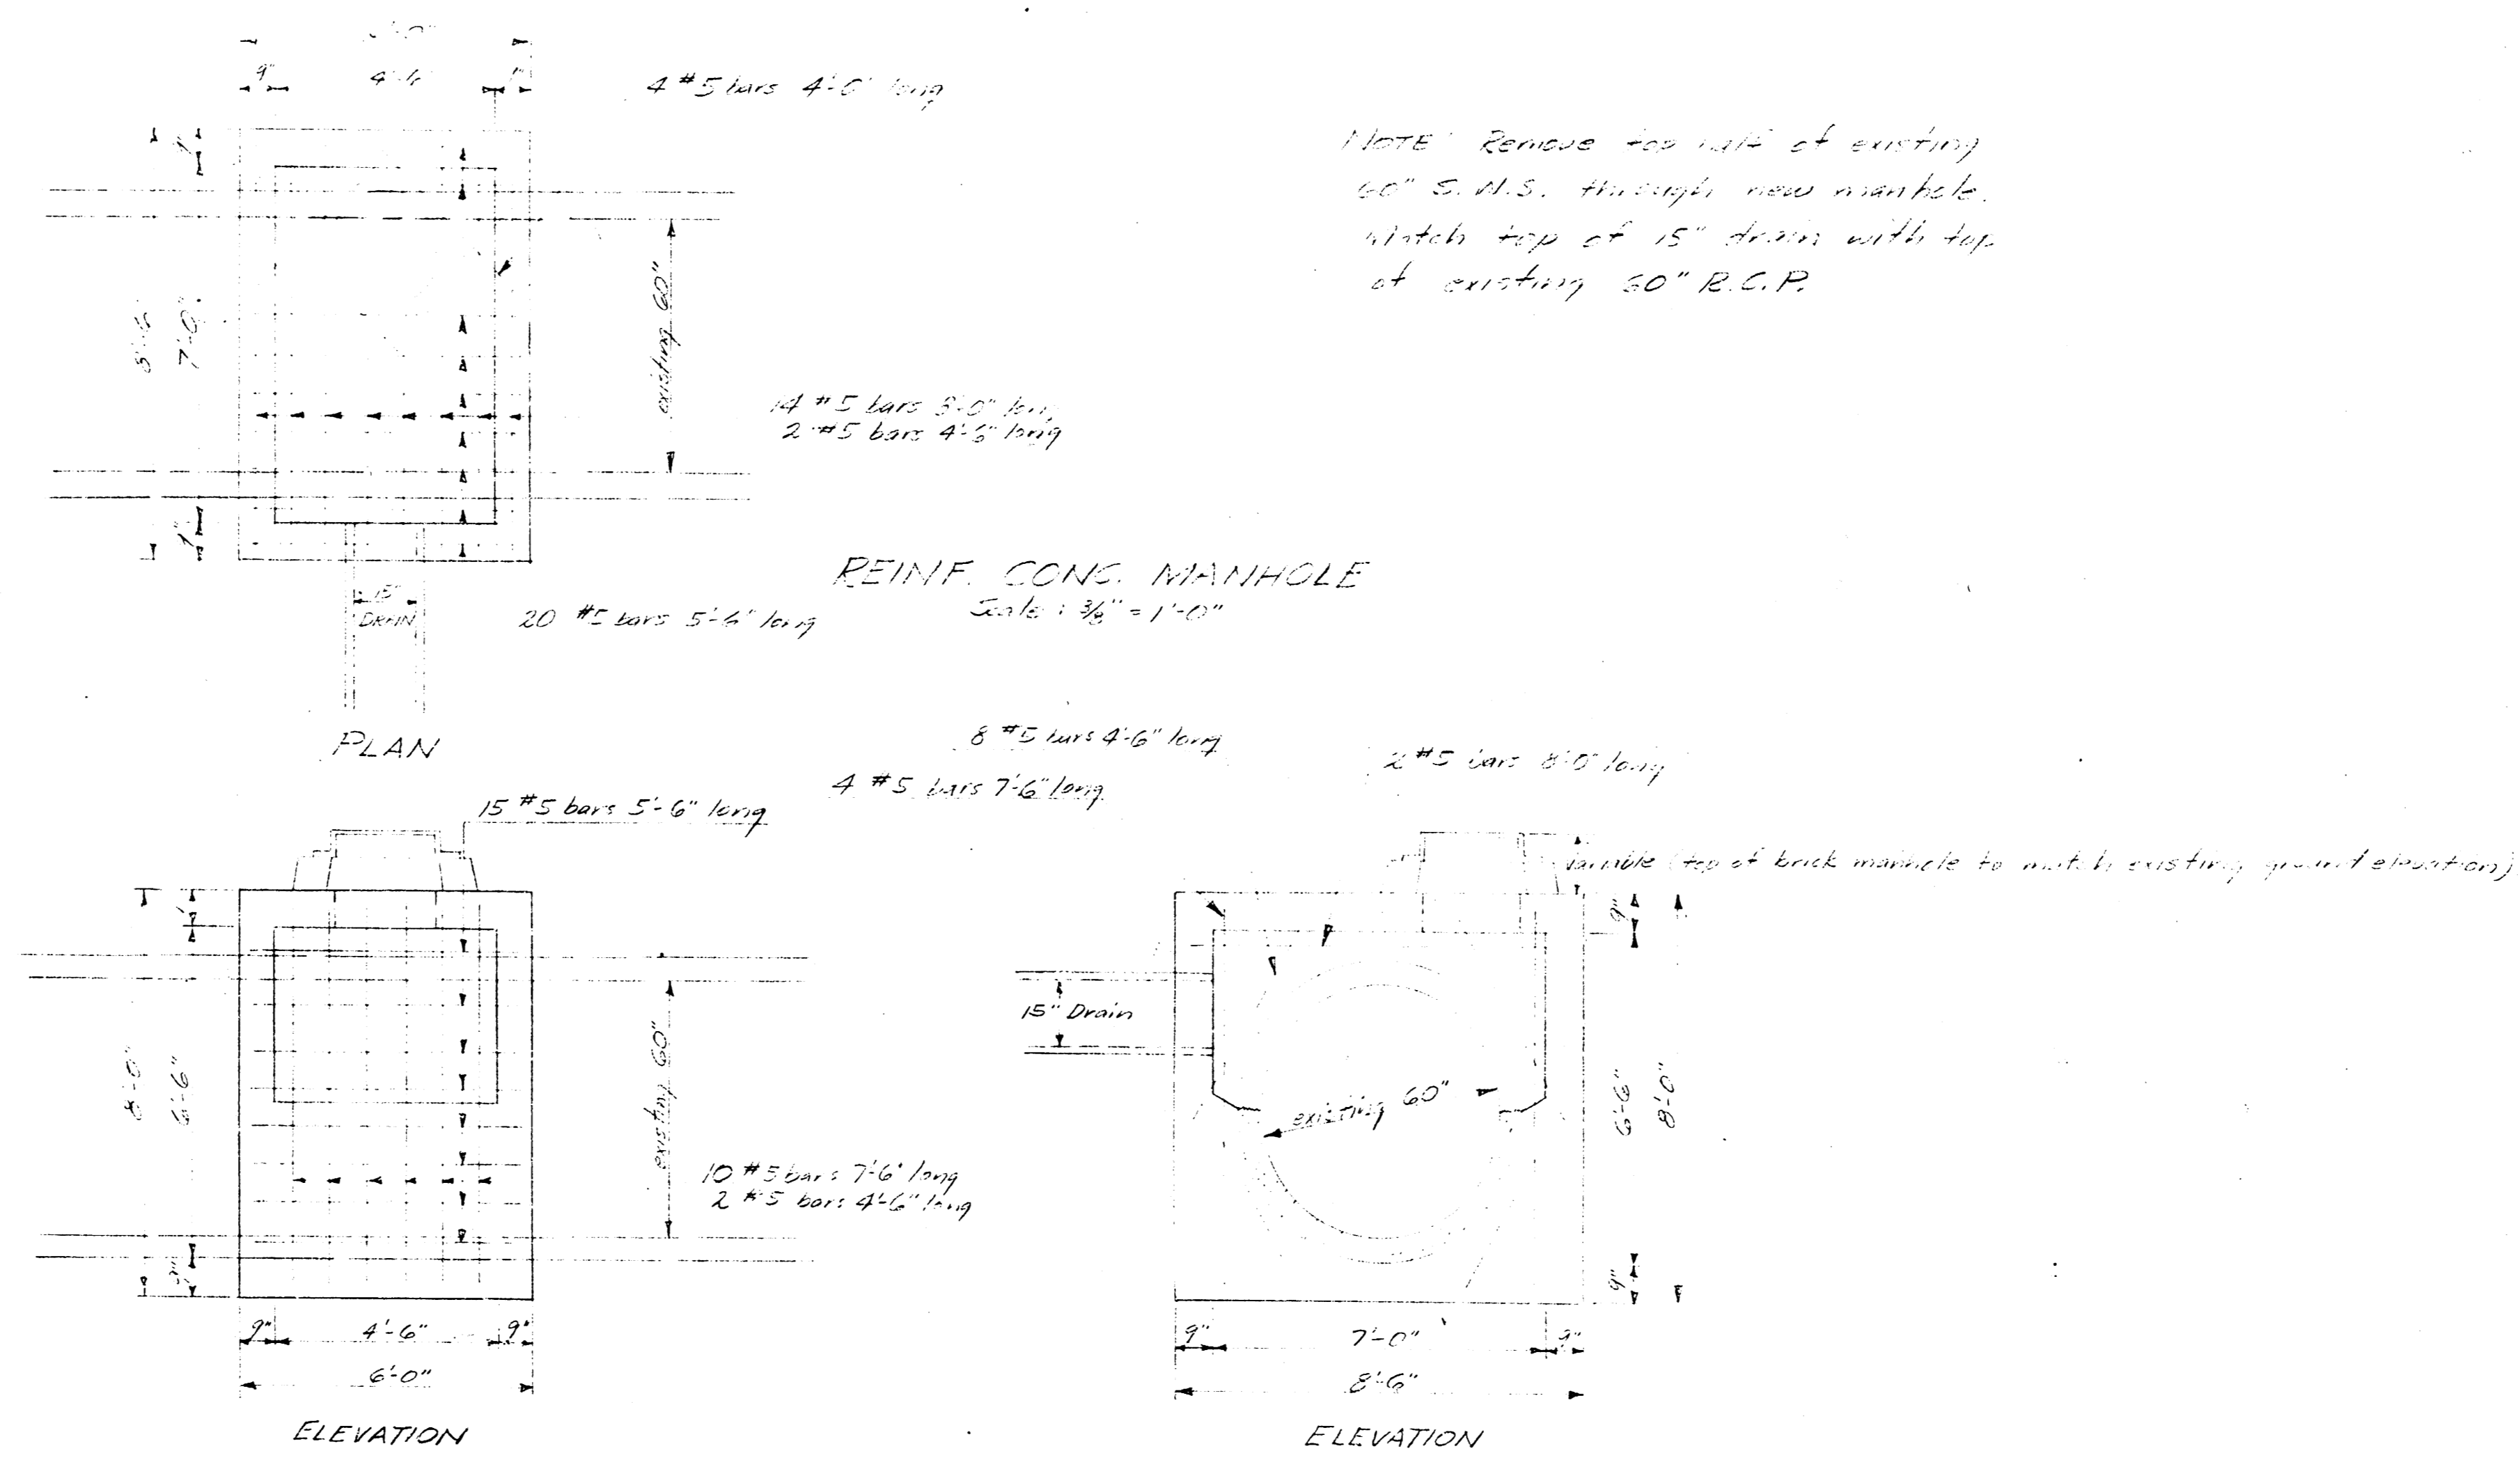 9" 4'-6"
4 #5 bars 4'-0" long
NOTE: Remove top half of existing
60" S.W.S. through new manhole.
Match top of 15" drain with top
of existing 60" R.C.P.
8'-6"
7'-0"
existing 60"
14 #5 bars 8'-0" long
2 #5 bars 4'-6" long
REINF. CONC. MANHOLE
Scale: 3/8" = 1'-0"
15"
DRAIN
20 #5 bars 5'-6" long
PLAN
8 #5 bars 4'-6" long
2 #5 bars 8'-0" long
4 #5 bars 7'-6" long
15 #5 bars 5'-6" long
Variable (top of brick manhole to match existing ground elevation)
9"
8'-0"
6'-6"
existing 60"
10 #5 bars 7'-6" long
2 #5 bars 4'-6" long
9" 4'-6" 9"
6'-0"
ELEVATION
15" Drain
existing 60"
6'-6"
8'-0"
9"
9" 7'-0" 9"
8'-6"
ELEVATION